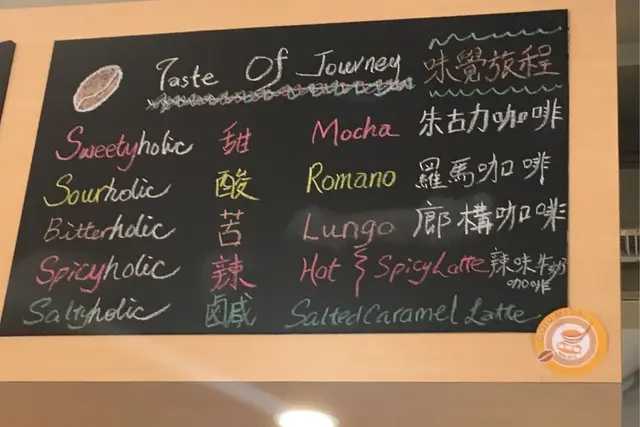 Taste Of Journey 味覺旅程
Sweetyholic 甜 Mocha 朱古力咖啡
Sourholic 酸 Romano 羅馬咖啡
Bitterholic 苦 Lungo 廊構咖啡
Spicyholic 辣 Hot & Spicy Latte 辣味牛奶咖啡
Saltyholic 鹹 Salted Caramel Latte